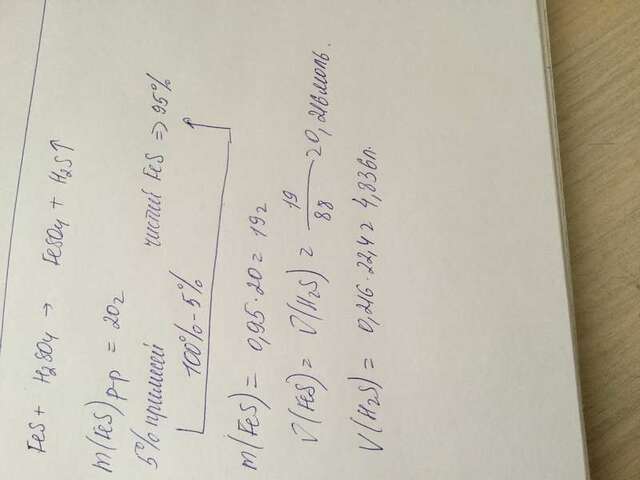 FeS + H₂SO₄ → FeSO₄ + H₂S↑
m(FeS) р-р = 20г
5% примесей чистий FeS => 95%
100% - 5%
m(FeS) = 0,95·20 = 19г
ν(FeS) = ν(H₂S) = 19/88 = 0,216моль.
V(H₂S) = 0,216·22,4 = 4,83вл.